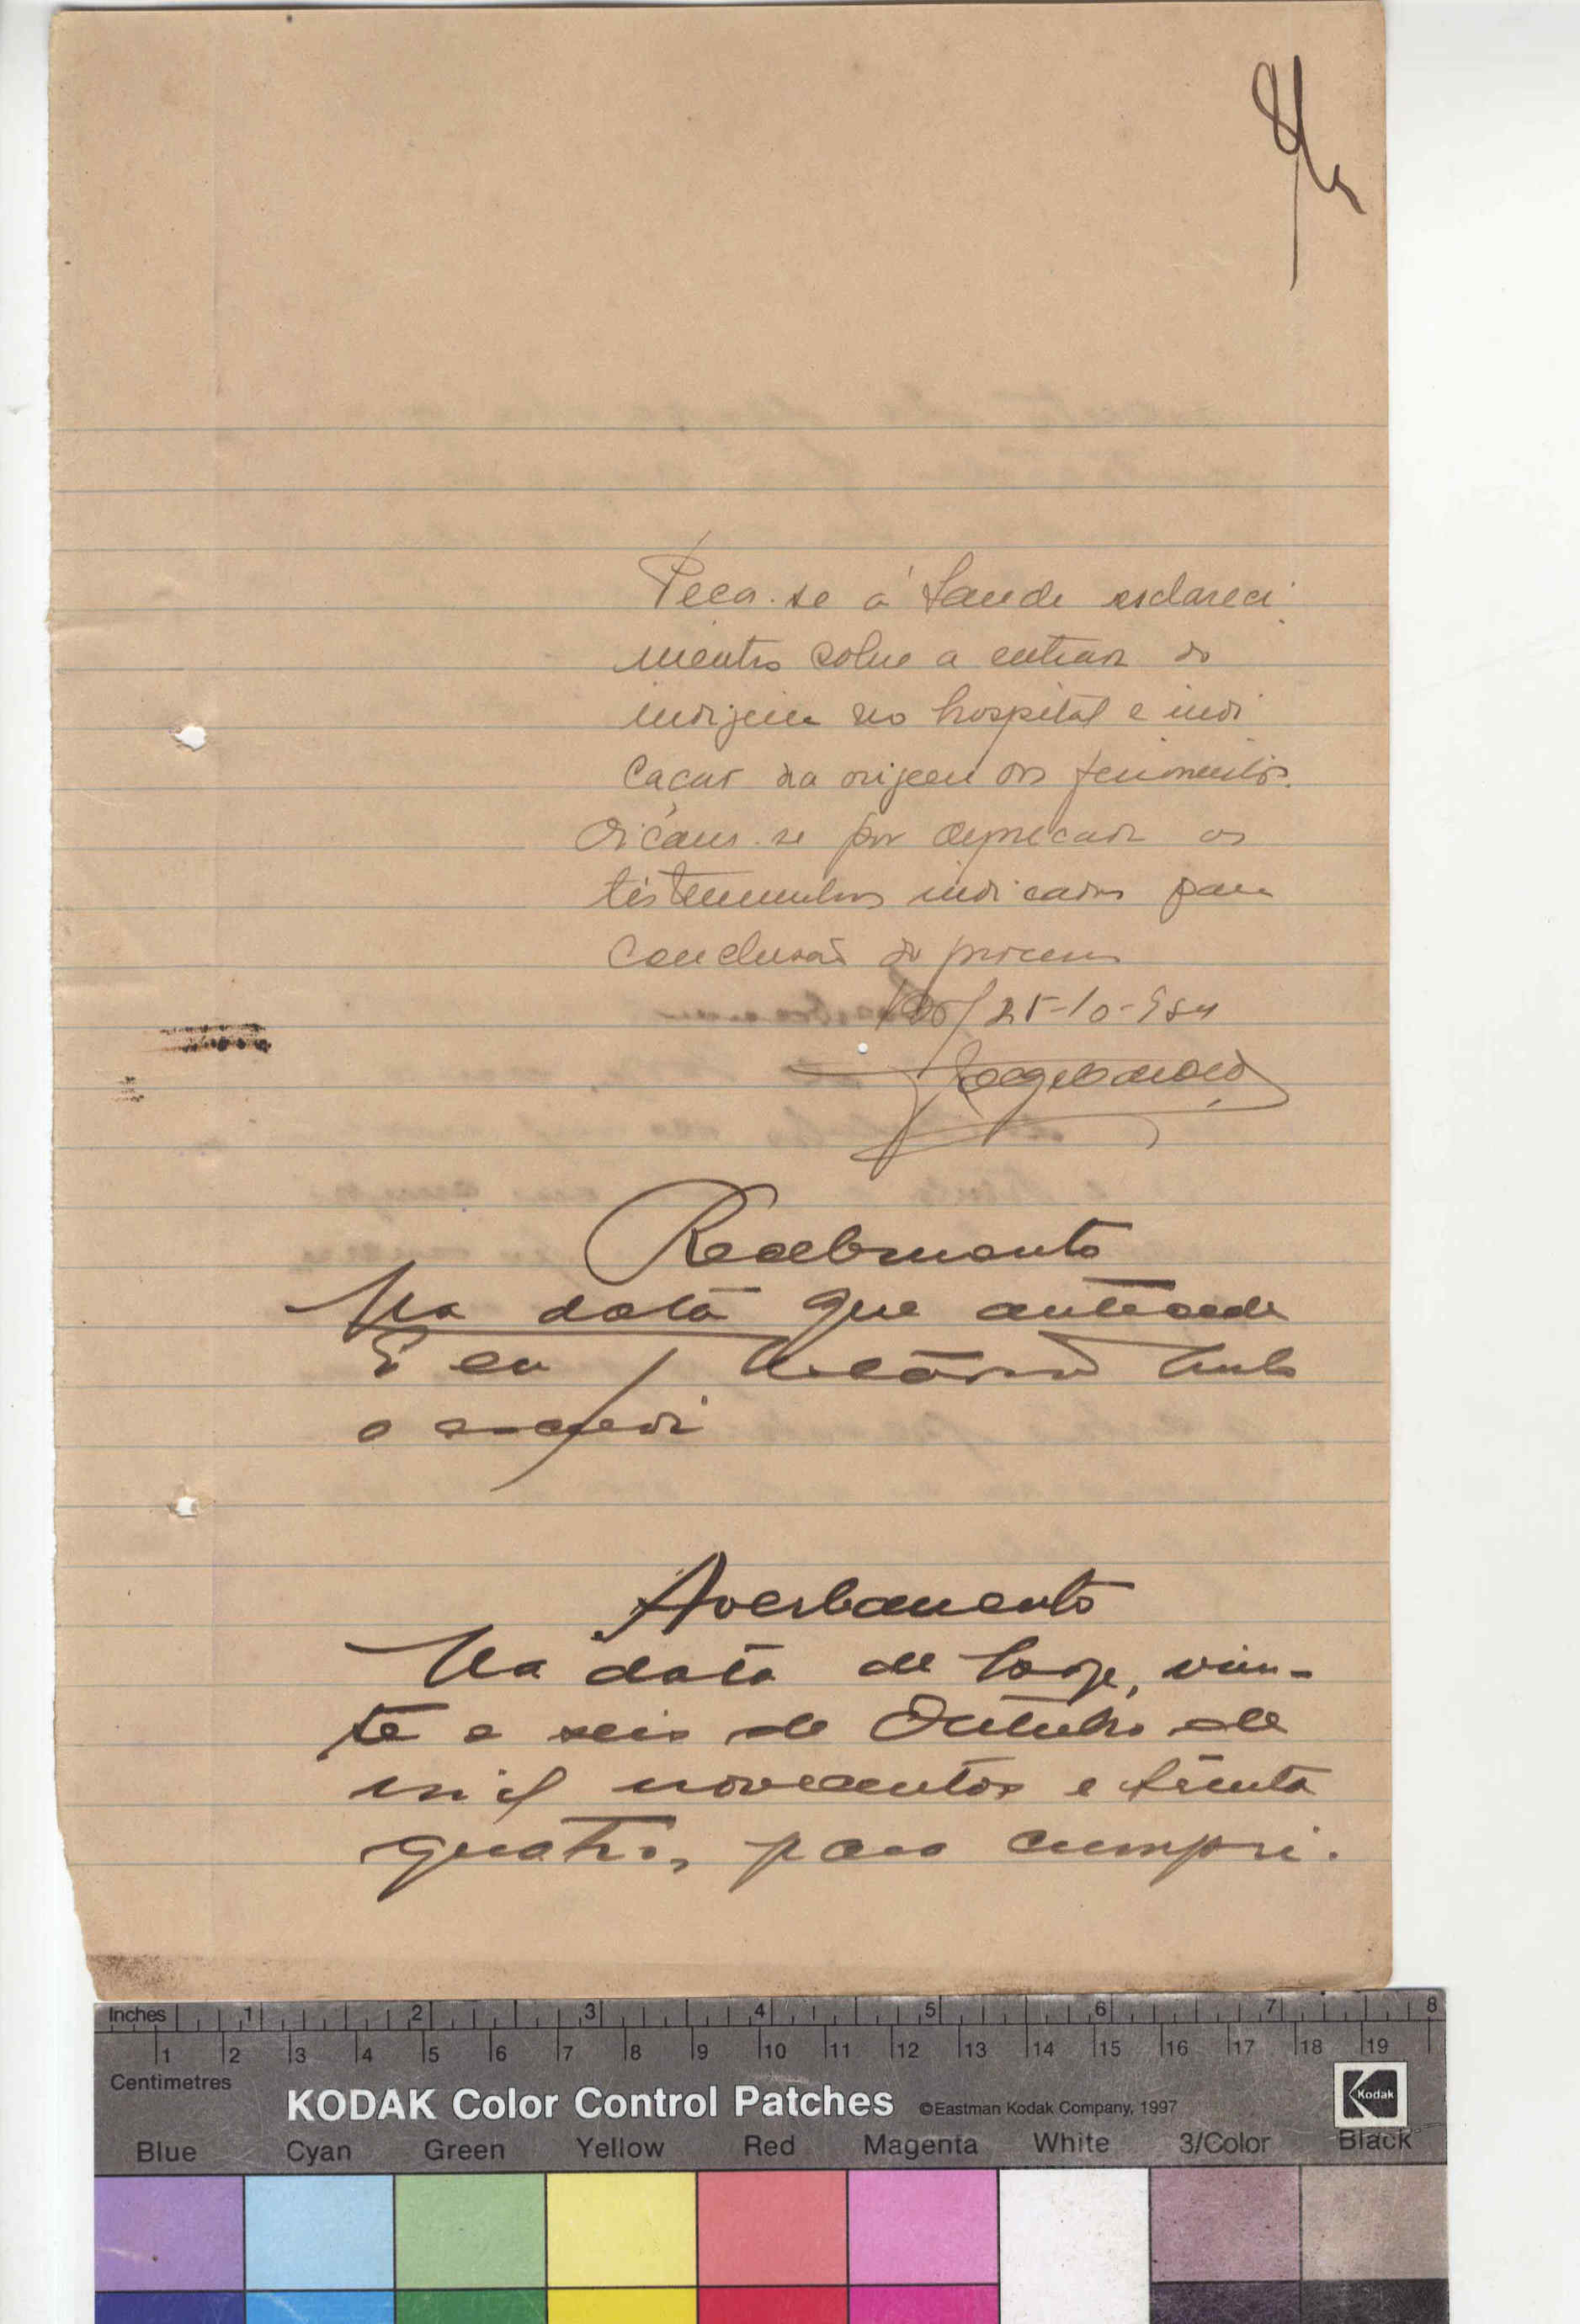 Peça-se á Saude esclareci
mentos sobre a entrada do
indigena no hospital e indi
cação da origem dos ferimentos.
Oiçam-se por deprecada as
testemunhas indicadas para
conclusão do processo
25-10-934
Recebimento
Na data que antecede
E eu
o escrevi
Averbamento
Na data de hoje, vin-
te e seis de Outubro de
mil novecentos e trinta
quatro, para cumpri.
Inches 1 2 3 4 5 6 7 8
1 2 3 4 5 6 7 8 9 10 11 12 13 14 15 16 17 18 19
Centimetres
KODAK Color Control Patches ©Eastman Kodak Company, 1997 Kodak
Blue Cyan Green Yellow Red Magenta White 3/Color Black